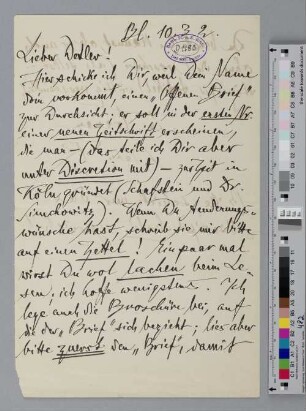 Bl. 10.3.92.
Lieber Dohler!
Hier schicke ich Dir, weil Dein Name
drin vorkommt, einen „Offenen Brief"
zur Durchsicht; er soll in der ersten Nr.
einer neuen Zeitschrift erscheinen,
die man – (Das teile ich Dir aber
unter Discretion mit) – zurzeit in
Köln gründet (Schafstein und Dr.
Simchowitz). Wenn Du Aenderungs-
wünsche hast, schreib sie mir bitte
auf einen Zettel! Ein paar mal
wirst Du wol lachen beim Le-
sen; ich hoffe wenigstens. Ich
lege auch die Broschüre bei, auf
die der „Brief" sich bezieht; lies aber
bitte zuerst den „Brief", damit
482